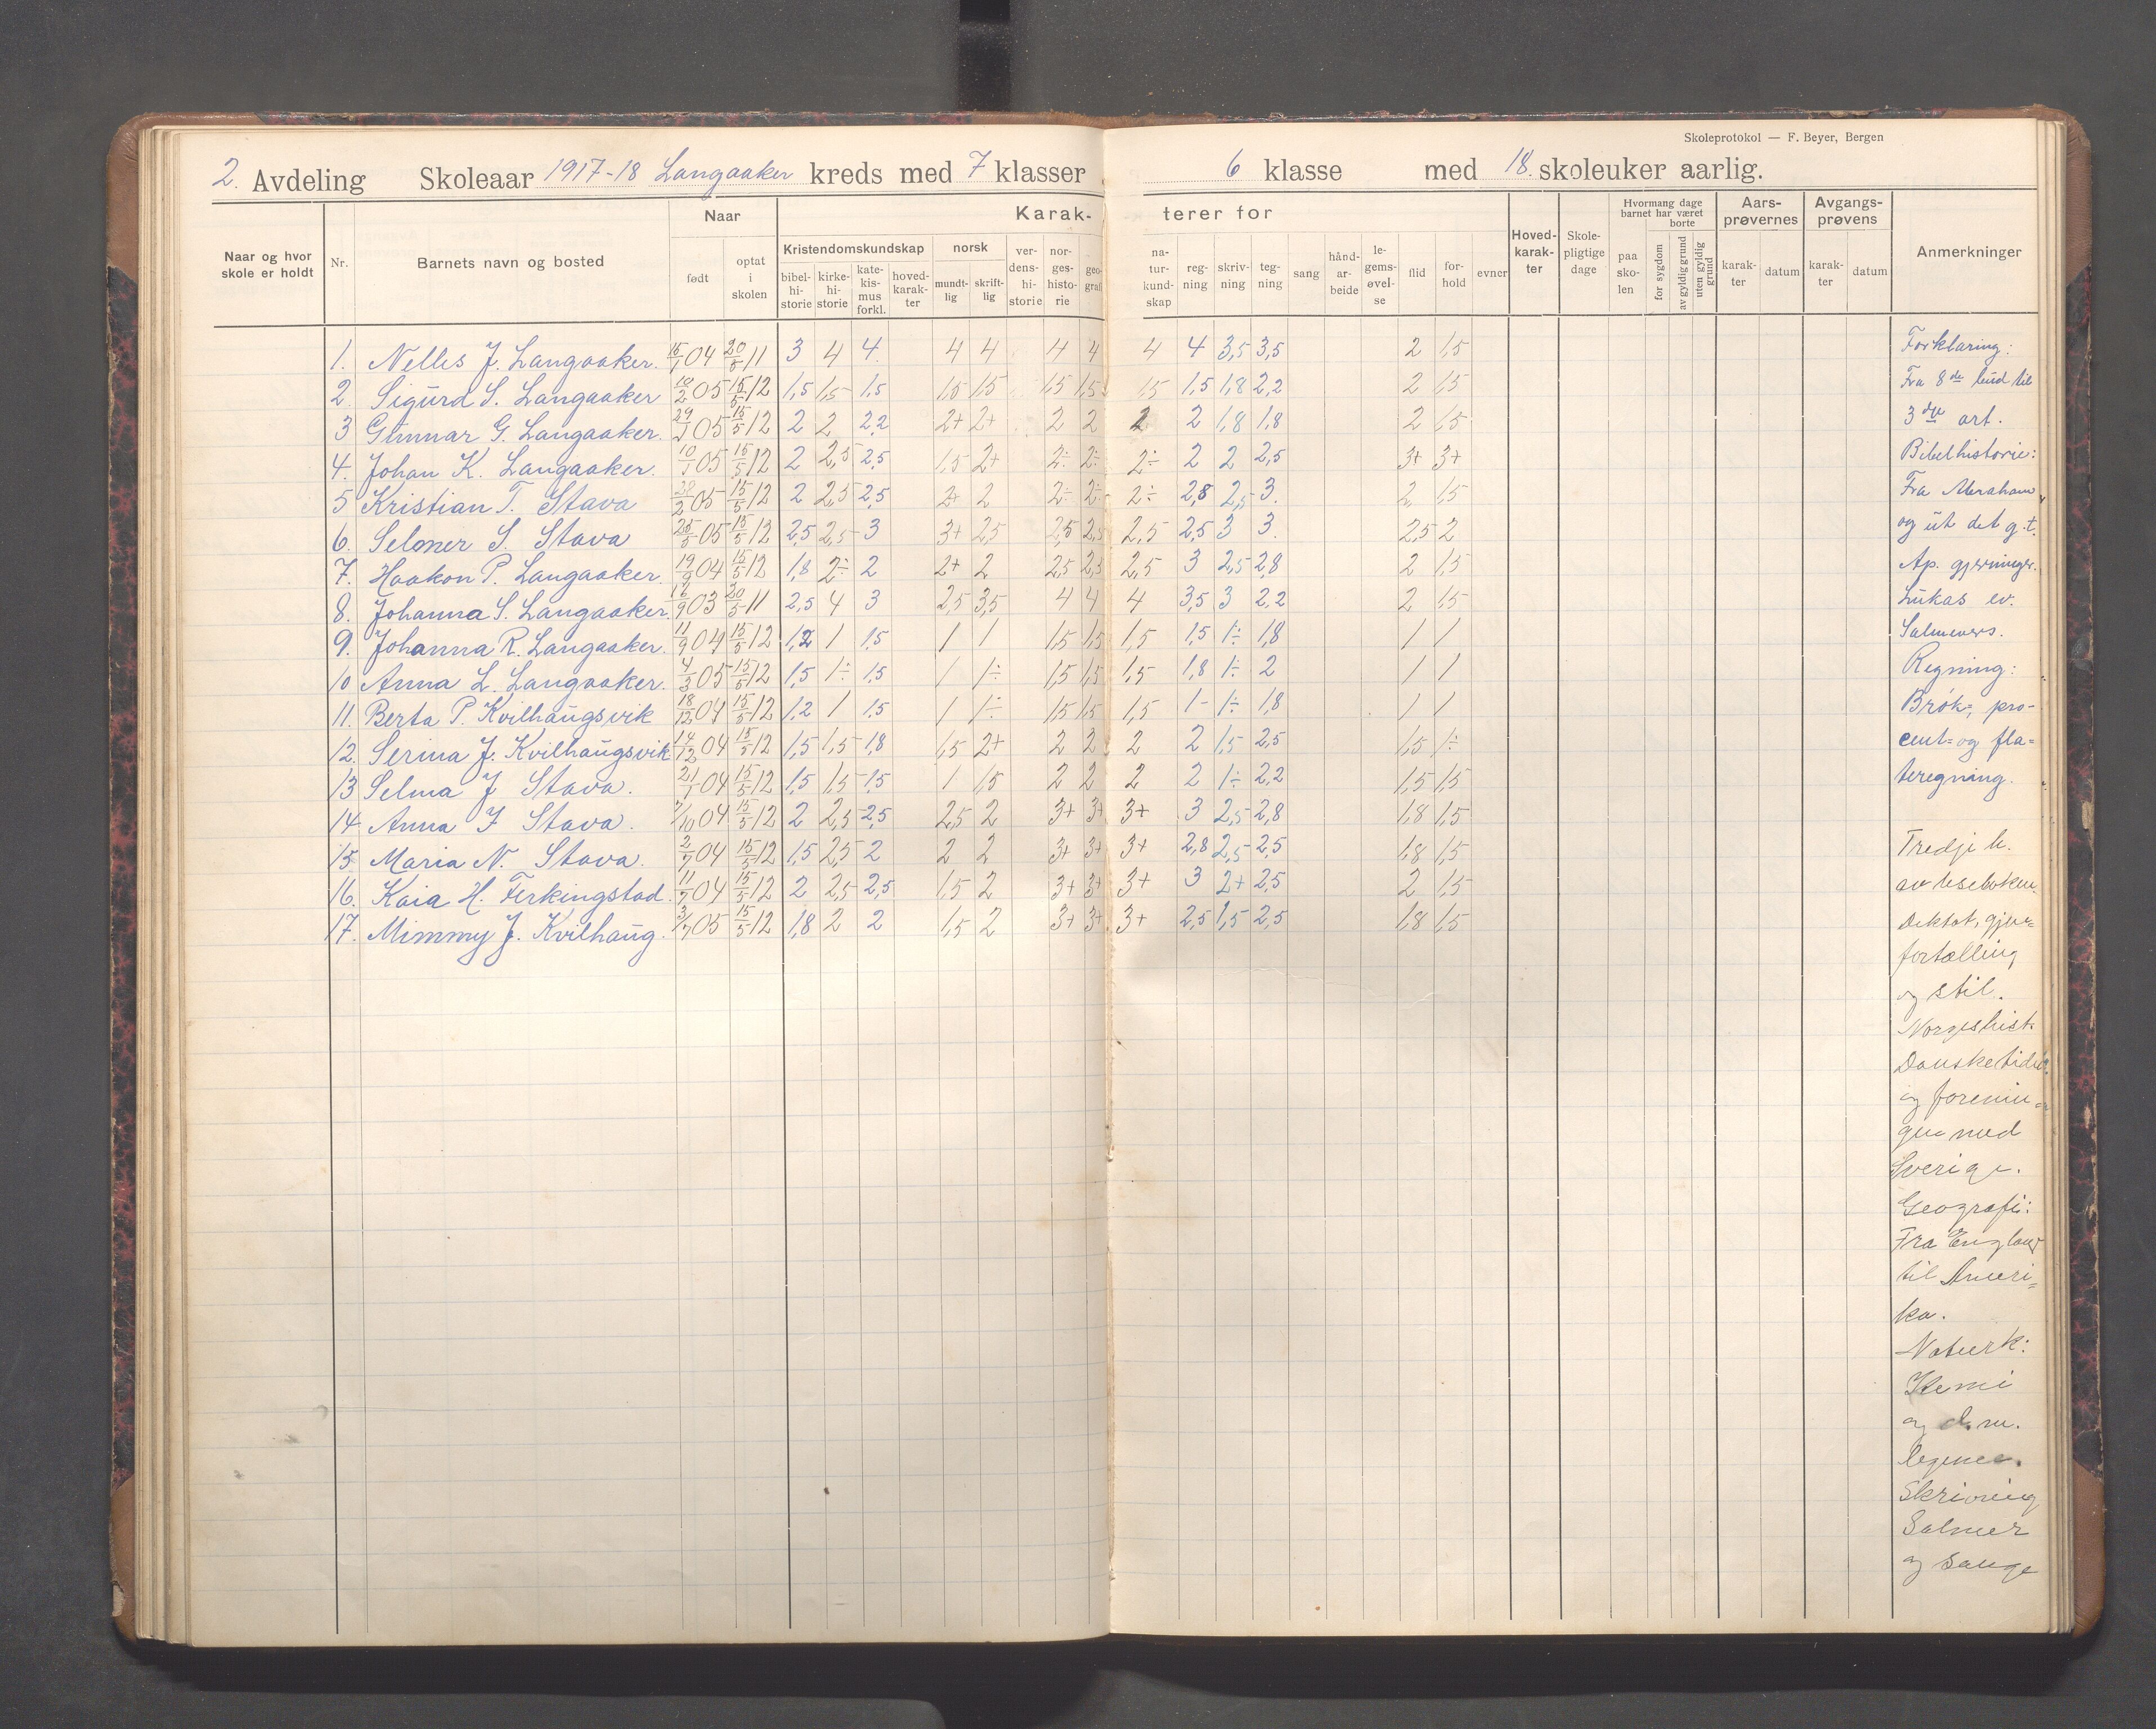 Skoleprotokol — F. Beyer, Bergen
2. Avdeling Skoleaar 1917-18 Langaaker kreds med 7 klasser 6 klasse med 18 skoleuker aarlig.
Naar og hvor skole er holdt
Nr.
Barnets navn og bosted
Naar
født
optat i skolen
Karak-
terer for
Kristendomskundskap
bibel-hi-storie
kirke-hi-storie
kate-kis-mus forkl.
hoved-karak-ter
norsk
mundt-lig
skrift-lig
ver-dens-hi-storie
nor-ges-histo-rie
geo-grafi
na-tur-kund-skap
reg-ning
skriv-ning
teg-ning
sang
hånd-ar-beide
le-gems-øvel-se
flid
for-hold
evner
Hoved-karak-ter
Skole-pligtige dage
Hvormang dage barnet har været
paa sko-len
borte
for sygdom
av gyldig grund
uten gyldig grund
Aars-prøvernes
karak-ter
datum
Avgangs-prøvens
karak-ter
datum
Anmerkninger
1. Nelles J. Langaaker. 15/1 04 20/5 11 3 4 4 4 4 4 4 4 4 3,5 3,5 2 1,5
2. Sigurd S. Langaaker 18/2 05 15/5 12 1,5 1,5 1,5 1,5 1,5 1,5 1,5 1,5 1,5 1,8 2,2 2 1,5
3 Gunnar G. Langaaker. 29/1 05 15/5 12 2 2 2,2 2+ 2+ 2 2 2 2 1,8 1,8 2 1,5
4. Johan K. Langaaker. 10/1 05 15/5 12 2 2,5 2,5 1,5 2+ 2÷ 2÷ 2÷ 2 2 2,5 3+ 3+
5 Kristian T. Stava 28/2 05 15/5 12 2 2,5 2,5 2+ 2 2÷ 2÷ 2÷ 2,8 2,5 3. 2 1,5
6. Selmer S. Stava 25/5 05 15/5 12 2,5 2,5 3 3+ 2,5 2,5 2,5 2,5 2,5 3 3. 2,5 2
7. Haakon P. Langaaker. 19/9 04 15/5 12 1,8 2÷ 2 2+ 2 2,5 2,5 2,5 3 2,5 2,8 2 1,5
8. Johanna S. Langaaker. 12/9 03 20/5 11 2,5 4 3 2,5 3,5 4 4 4 3,5 3 2,2 2 1,5
9. Johanna R. Langaaker. 11/9 04 15/5 12 1,2 1 1,5 1 1 1,5 1,5 1,5 1,5 1÷ 1,8 1 1
10 Anna L. Langaaker. 4/3 05 15/5 12 1,5 1÷ 1,5 1 1÷ 1,5 1,5 1,5 1,8 1÷ 2 1 1
11. Berta P. Kvilhaugsvik 18/12 04 15/5 12 1,2 1 1,5 1 1÷ 1,5 1,5 1,5 1- 1÷ 1,8 1 1
12. Serina J. Kvilhaugsvik 14/12 04 15/5 12 1,5 1,5 1,8 1,5 2+ 2 2 2 2 1,5 2,5 1,5 1÷
13 Selma J Stava. 21/1 04 15/5 12 1,5 1,5 1,5 1 1,5 2 2 2 2 1÷ 2,2 1,5 1,5
14 Anna J Stava. 7/10 04 15/5 12 2 2,5 2,5 2,5 2 3+ 3+ 3+ 3 2,5 2,8 1,8 1,5
15 Maria N. Stava. 2/7 04 15/5 12 1,5 2,5 2 2 2 3+ 3+ 3+ 2,8 2,5 2,5 1,8 1,5
16. Kaia H. Ferkingstad. 11/7 04 15/5 12 2 2,5 2,5 1,5 2 3+ 3+ 3+ 3 2+ 2,5 2 1,5
17. Mimmy J. Kvilhaug. 3/7 05 15/5 12 1,8 2 2 1,5 2 3+ 3+ 3+ 2,5 1,5 2,5 1,8 1,5
Forklaring:
Fra 8de bud til
3die art.
Bibelhistorie:
Fra Abraham
og ut det g.t.
Ap. gjerninger.
Lukas ev.
Salmevers.
Regning:
Brøk=, pro-
cent= og fla=
teregning.
Tredje l.
av leseboken.
Diktat, gjen=
fortælling
og stil.
Norgeshist.
Dansketiden
og forenin=
gen med
Sverige.
Geografi:
Fra England
til Ameri=
ka.
Naturk:
Kemi
og d. m.
legeme.
Skrivning
Salmer
og sange